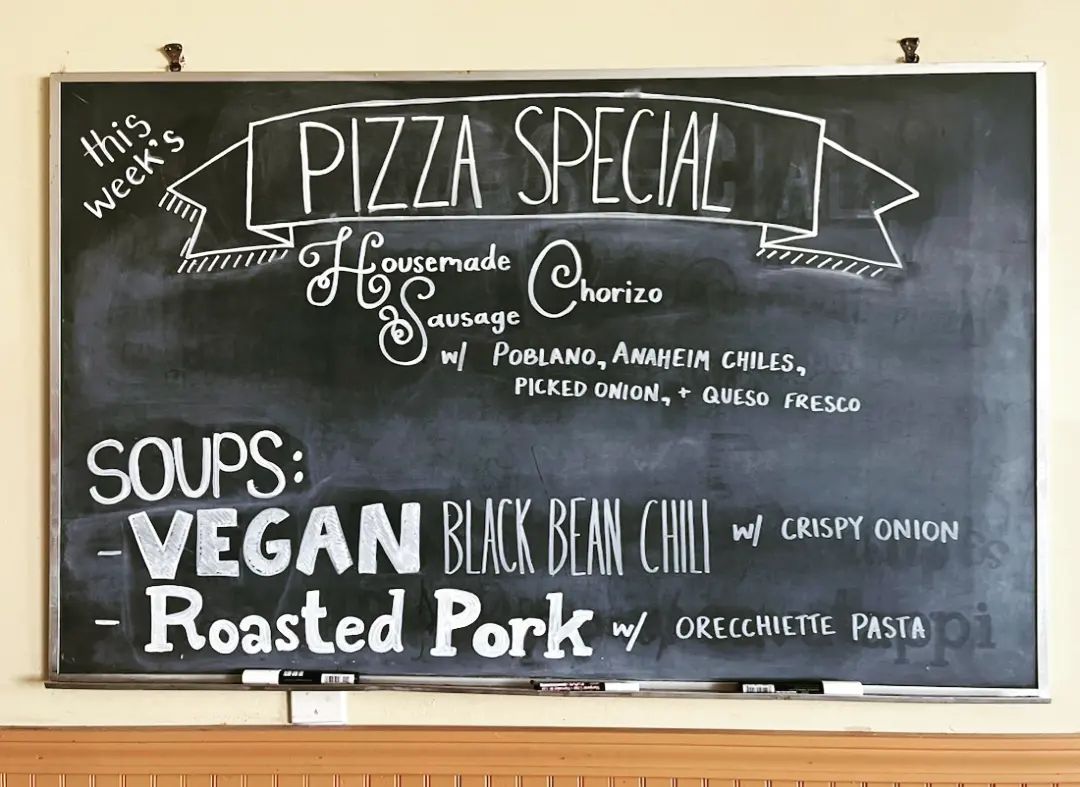 this
week's
PIZZA SPECIAL
Housemade Chorizo
Sausage
w/ POBLANO, ANAHEIM CHILES,
PICKED ONION, + QUESO FRESCO
SOUPS:
- VEGAN BLACK BEAN CHILI w/ CRISPY ONION
- Roasted Pork w/ ORECCHIETTE PASTA